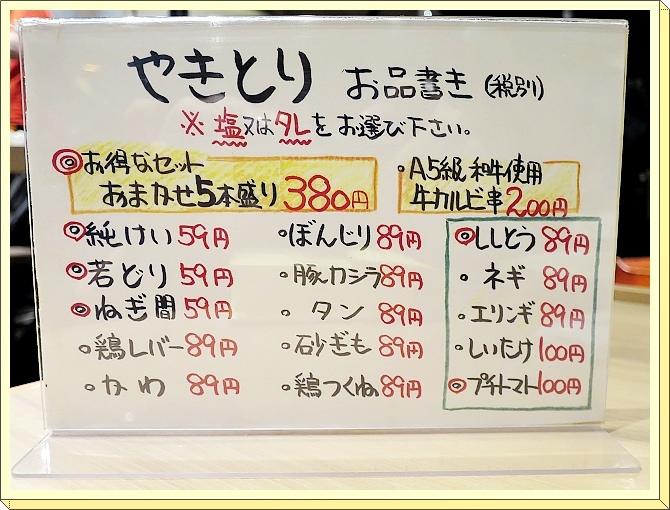 やきとり お品書き (税別)
※ 塩又はタレをお選び下さい。
◎お得なセット
おまかせ5本盛り 380円
・A5級 和牛使用
牛カルビ串 200円
◎純けい 59円
◎若どり 59円
◎ねぎ間 59円
・鶏レバー 89円
・かわ 89円
・ぼんじり 89円
・豚カシラ 89円
・タン 89円
・砂ぎも 89円
・鶏つくね 89円
◎ししとう 89円
・ネギ 89円
・エリンギ 89円
・しいたけ 100円
◎プチトマト 100円